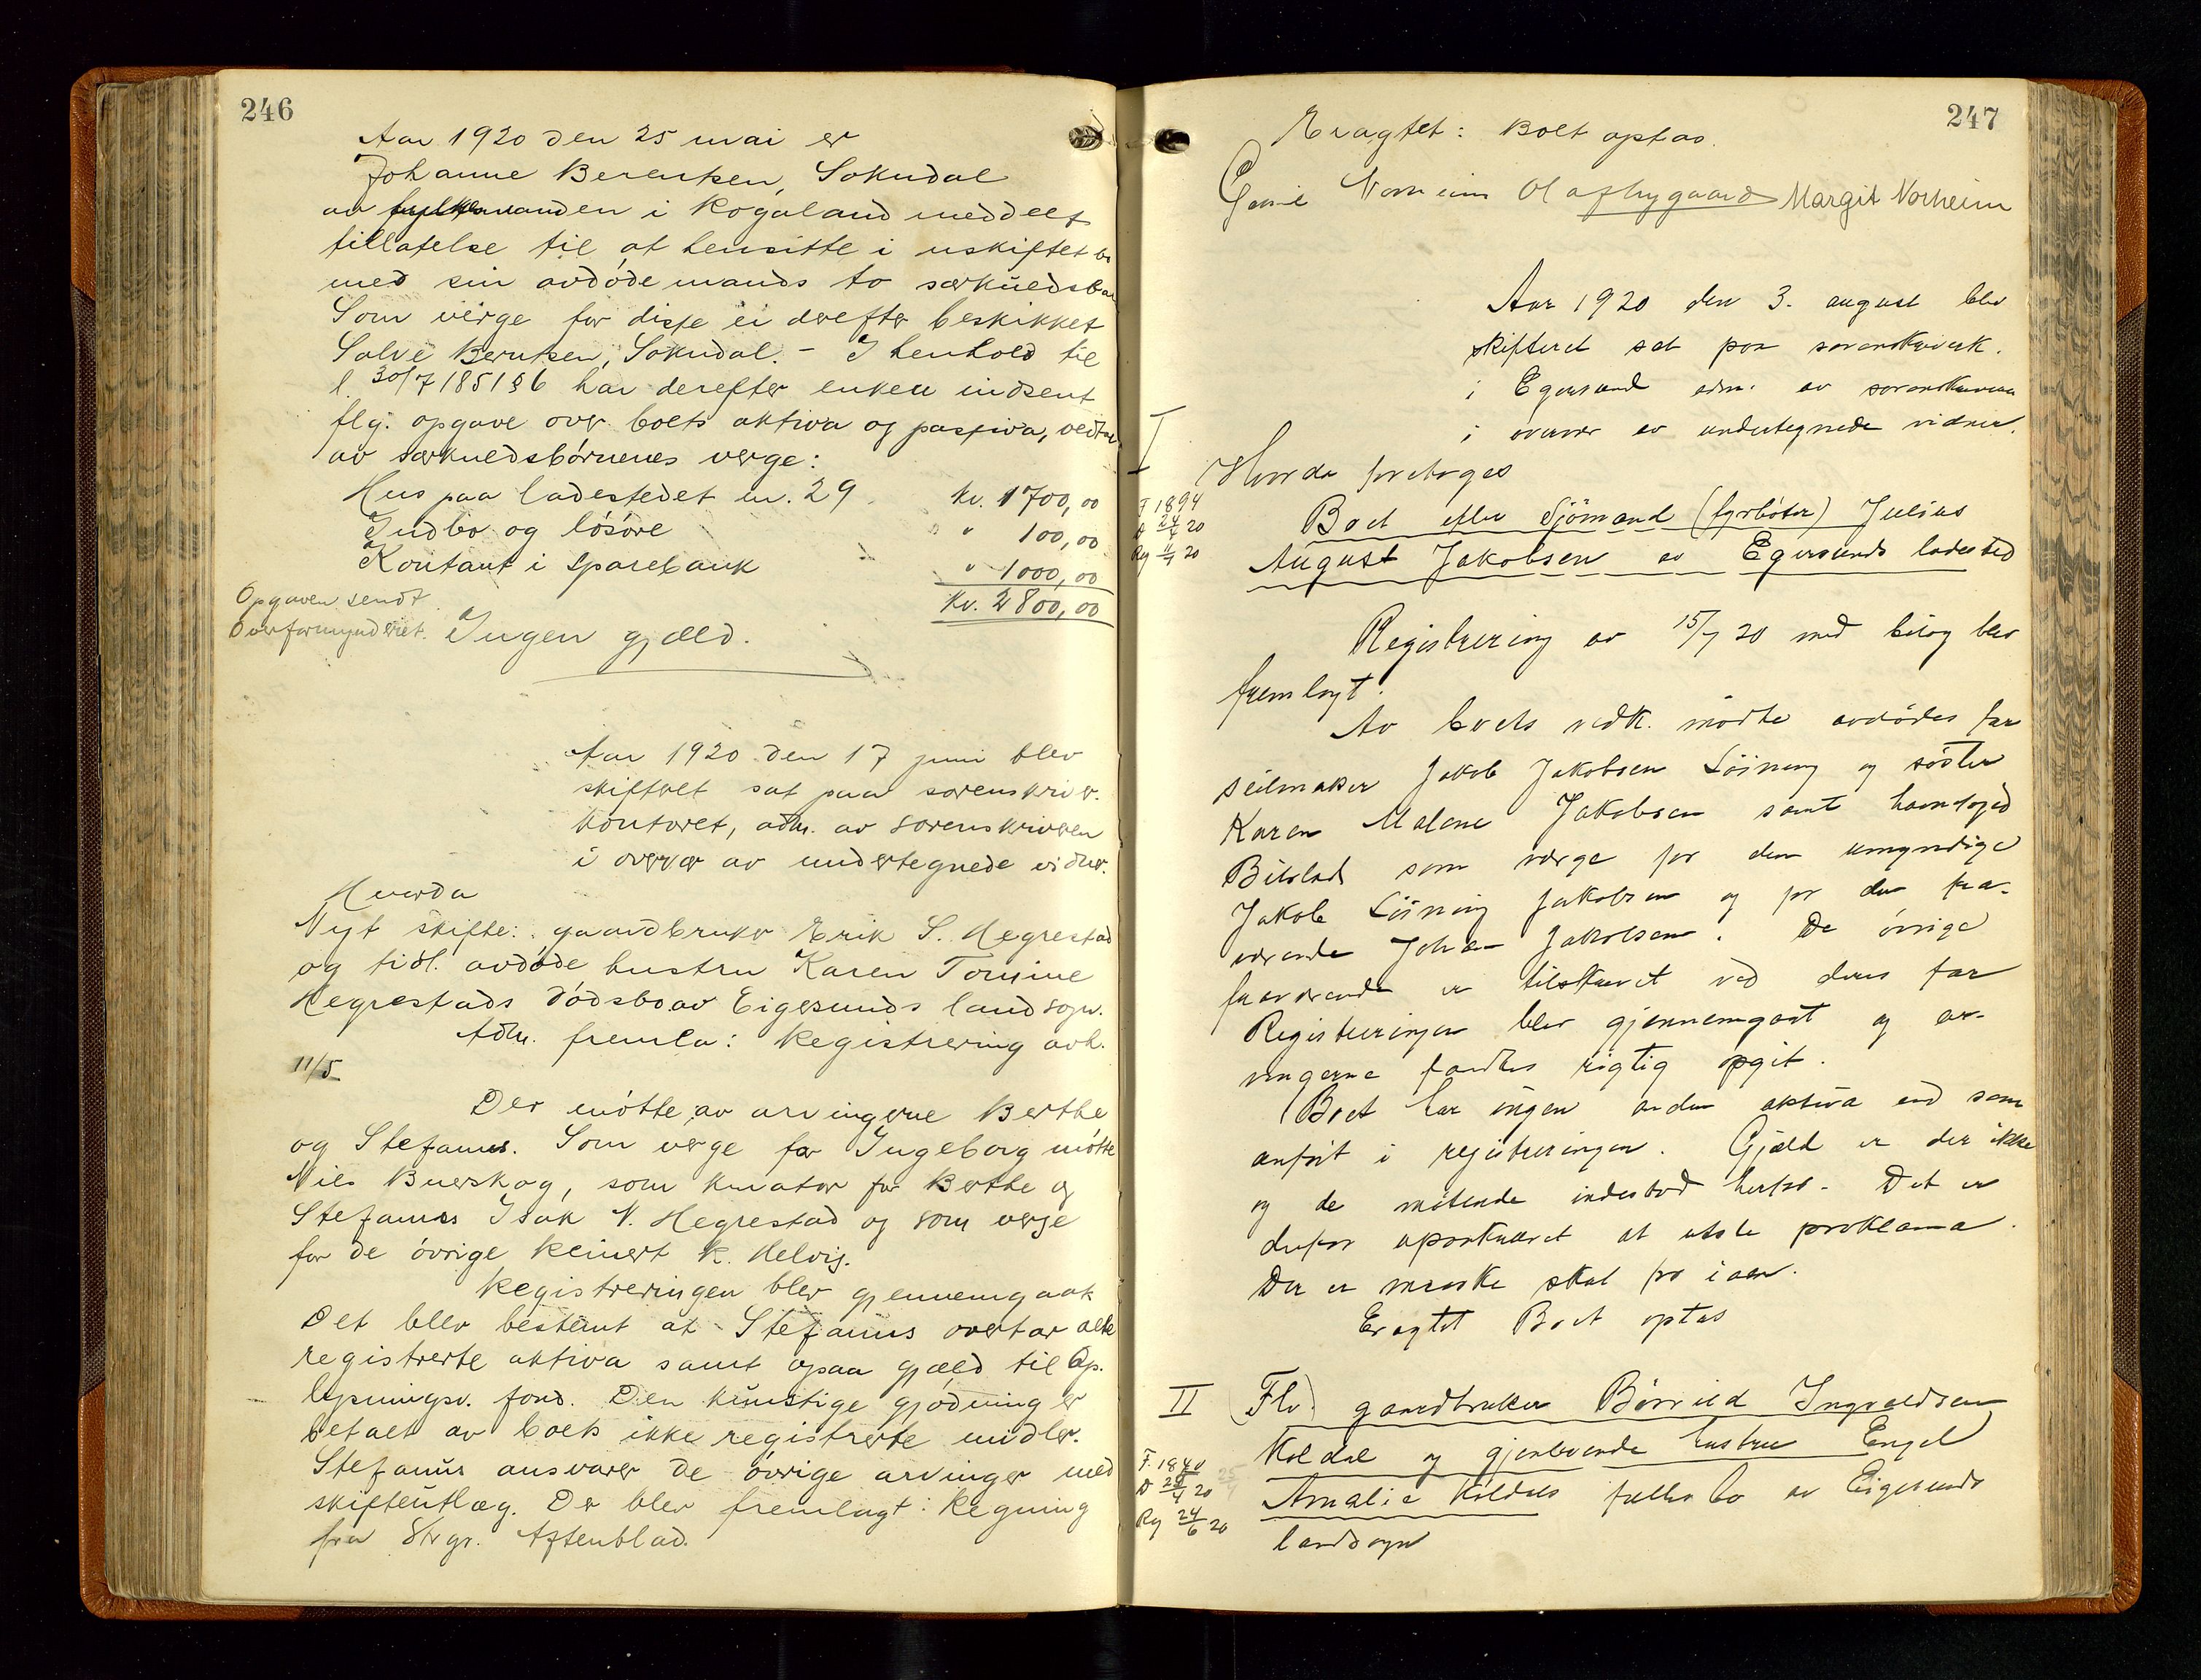 246
Aar 1920 den 25 mai er
Johanne Berentsen, Sokndal
av fylkesmanden i Rogaland meddelt
tillatelse til at hensitte i uskiftet bo
med sin avdøde mands to særkuldsbar
Som verge for disse er derefter beskikket
Salve Berntsen, Sokndal. - I henhold til
l. 30/7 1851 § 6 har derefter enken indsent
flg. opgave over boets aktiva og passiva, vedtat
av særkuldsbørnenes verge:
Hus paa ladestedet m. 29 kr. 1700,00
Indbo og løsøre " 100,00
Kontant i Sparebank " 1000,00
Kr. 2800,00
Opgaven sendt
Overformynderiet.
Ingen gjæld.
Aar 1920 den 17 juni blev
skifteret sat paa sorenskriver-
kontoret, adm. av sorenskriveren
i overvær av undertegnede vidner.
Hvorda
Nyt skifte: gaardbruker Erik S. Hegrestad
og tidl. avdøde hustru Karen Tomine
Hegrestads dødsbo av Eigersunds landsogn.
Adm. fremla: Registrering avh.
11/5
Der møtte av arvingerne Berthe
og Stefanus. Som verge for Ingeborg møtte
Nils Buerskog, som kurator for Berthe og
Stefanus Isak N. Hegrestad og som verge
for de øvrige Reinert K. Helvig.
Registreringen blev gjennemgaat
Det blev bestemt at Stefanus overtar alle
registrerte aktiva samt ogsaa gjæld til Op-
lysningsv. fond. Den kunstige gjødning er
betalt av boets ikke registrerte midler.
Stefanus ansvarer de øvrige arvinger med
skifteutlæg. Der blev fremlagt: Regning
fra Stvgr. Aftenblad.
247
Eragtet: Boet optas.
Norheim Olaf Nygaard Margit Norheim
Aar 1920 den 3. august blev
skifteret sat paa sorenskriverk.
i Egersund adm. av sorenskriveren
i overvær av undertegnede vidner.
I
Hvorda foretoges
F 1894
D 24/4 20
Rg 11/4 20
Boet efter Sjømand (fyrbøter) Julius
August Jakobsen av Egersunds ladested
Registrering av 15/7 20 med bilag blev
fremlagt.
Av boets vedk. mødte avdødes far
seilmaker Jakob Jakobsen Løining og søster
Karen Malene Jakobsen samt
som værge for den umyndige
Jakob Løining Jakobsen og for den fra-
værende Johan Jakobsen. De øvrige
fraværende er tilskrevet ved deres far
Registreringen blev gjennemgaat og ar-
vingerne fandtes rigtig opgit.
Boet har ingen anden aktiva end som
anført i registreringen. Gjæld er der ikke
og de møtende indestod herfor. Det er
derfor upaakrævet at utste proklama.
Der er maaske skat for iaar.
Eragtet Boet optas
II
(Flv.) gaardbruker Børrild Ingvaldsen
Koldal og gjenlevende hustru Engel
Amalie Koldals fællesbo av Eigersunds
landsogn
F. 1840
D 28/4 20
Rg 24/6 20